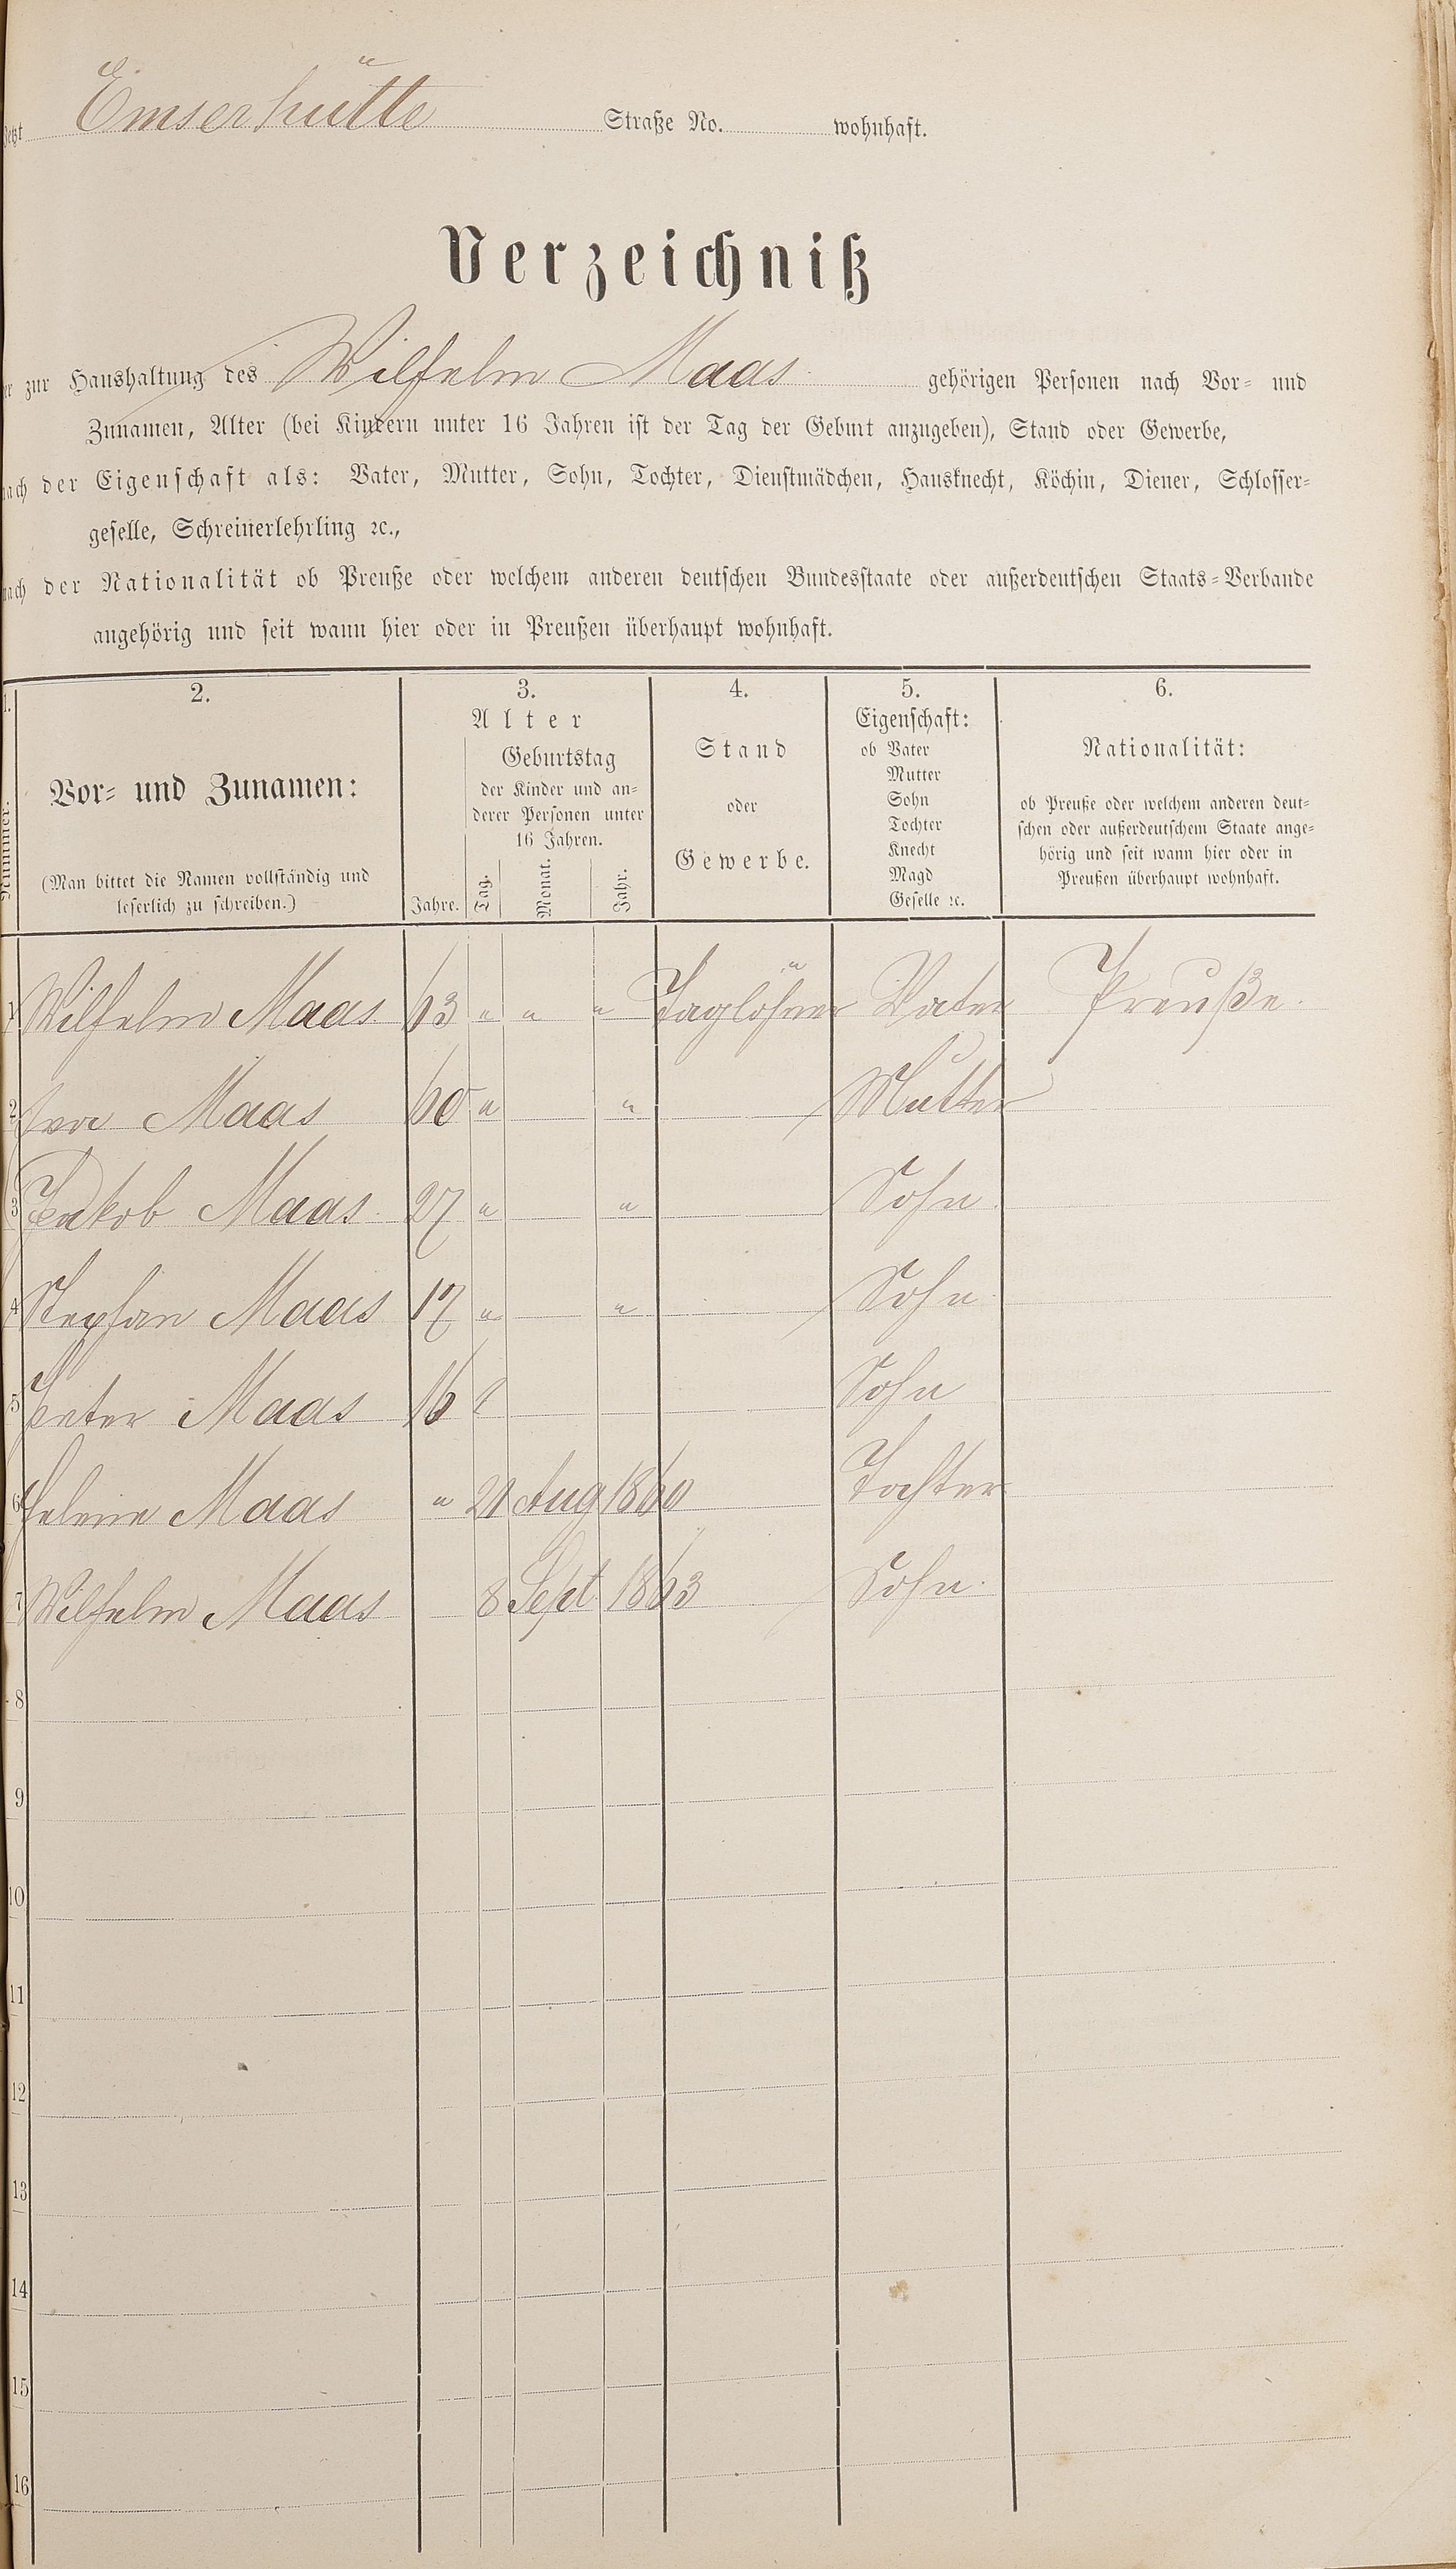 Jetzt Emserhütte Straße No. wohnhaft.
Verzeichniß
er zur Haushaltung des Wilhelm Maas gehörigen Personen nach Vor- und
Zunamen, Alter (bei Kindern unter 16 Jahren ist der Tag der Geburt anzugeben), Stand oder Gewerbe,
nach der Eigenschaft als: Vater, Mutter, Sohn, Tochter, Dienstmädchen, Hausknecht, Köchin, Diener, Schlosser-
geselle, Schreinerlehrling ꝛc.,
nach der Nationalität ob Preuße oder welchem anderen deutschen Bundesstaate oder außerdeutschen Staats-Verbande
angehörig und seit wann hier oder in Preußen überhaupt wohnhaft.
1. 2. 3. 4. 5. 6.
Nummer.
Vor- und Zunamen:
(Man bittet die Namen vollständig und
leserlich zu schreiben.)
Alter
Jahre.
Geburtstag
der Kinder und an-
derer Personen unter
16 Jahren.
Tag. Monat. Jahr.
Stand
oder
Gewerbe.
Eigenschaft:
ob Vater
Mutter
Sohn
Tochter
Knecht
Magd
Geselle ꝛc.
Nationalität:
ob Preuße oder welchem anderen deut-
schen oder außerdeutschem Staate ange-
hörig und seit wann hier oder in
Preußen überhaupt wohnhaft.
1 Wilhelm Maas 63 " " " Taglöhner Vater Preuße.
2 Maas 60 " " Mutter
3 Jakob Maas. 27 " " Sohn.
4 Stephan Maas 17 " " Sohn
5 Peter Maas 16 Sohn
6 Helena Maas " 21 Aug 1860 Tochter
7 Wilhelm Maas 8 Sept 1863 Sohn.
8
9
10
11
12
13
14
15
16